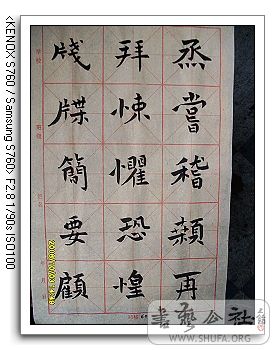 烝嘗稽顙再
拜悚懼恐惶
牋牒簡要顧
学校
班级
姓名
<KENOX S760 / Samsung S760> F2.8 1/90s ISO100
書艺公社
WWW.SHUFA.ORG